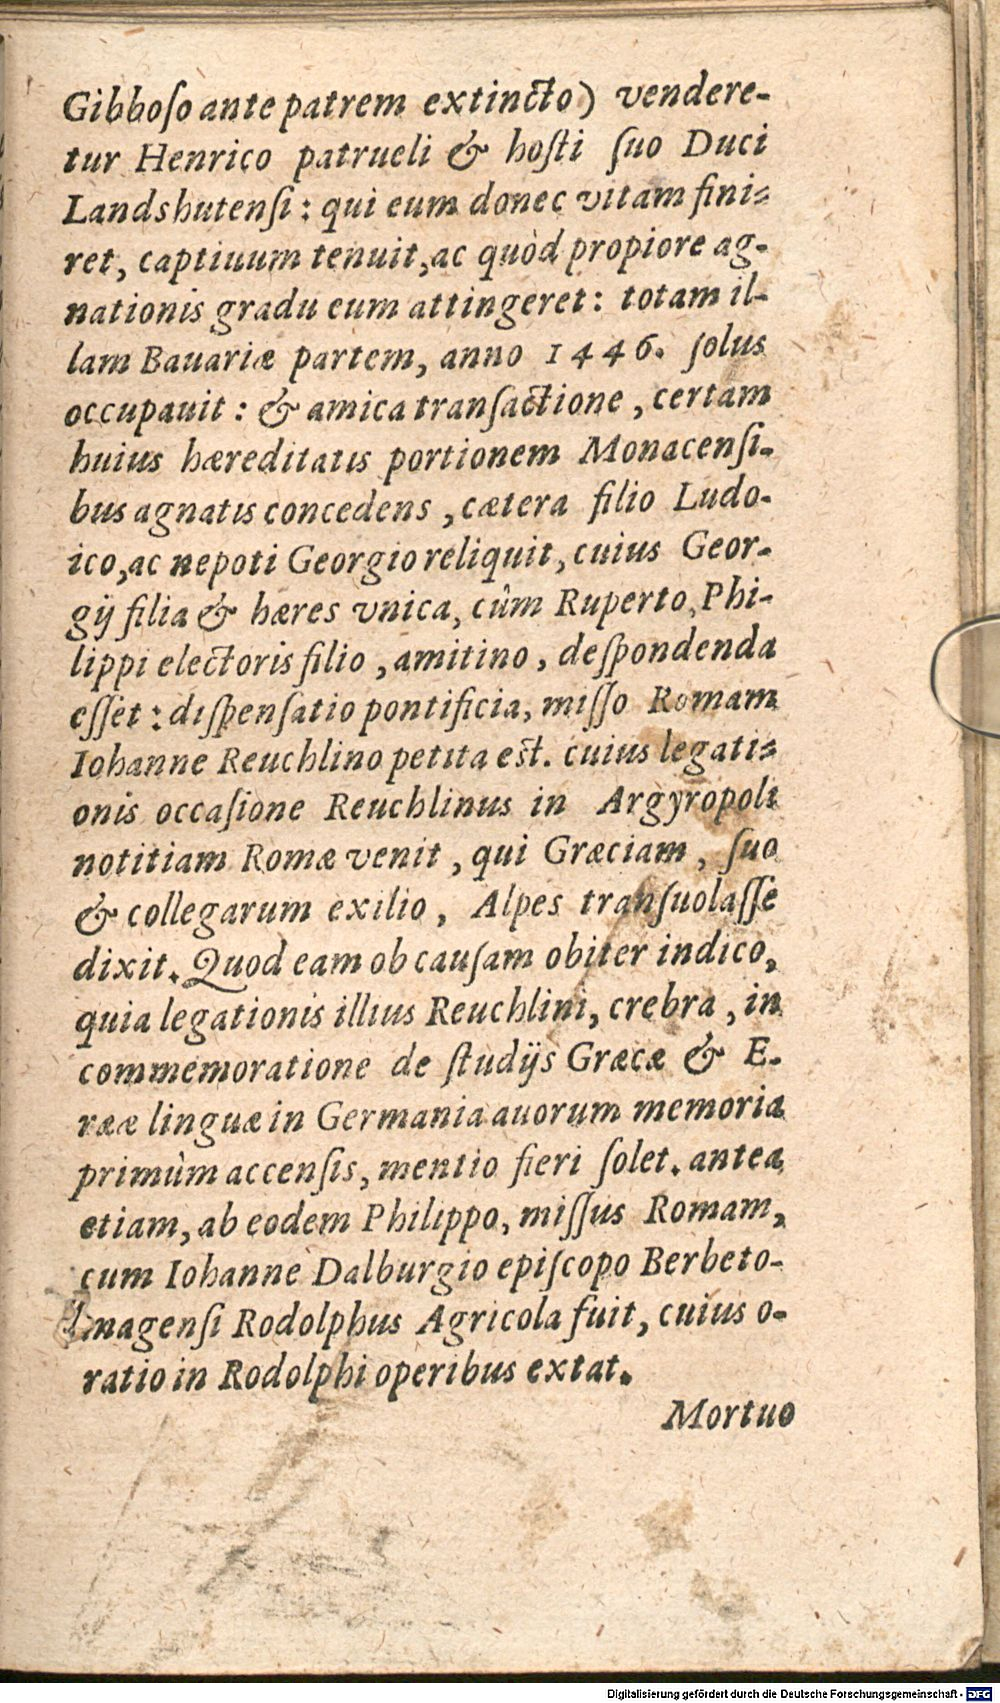 Gibboſo ante patrem extincto) vendere-
tur Henrico patrueli & hoſti ſuo Duci
Landshutenſi: qui eum donec vitam fini-
ret, captiuum tenuit, ac quòd propiore ag-
nationis gradu eum attingeret: totam il-
lam Bauariæ partem, anno 1446. ſolus
occupauit: & amica tranſactione, certam
huius hæreditatis portionem Monacenſi-
bus agnatis concedens, cætera filio Ludo-
ico, ac nepoti Georgio reliquit, cuius Geor-
gij filia & hæres vnica, cûm Ruperto, Phi-
lippi electoris filio, amitino, deſpondenda
eſſet: diſpenſatio pontificia, miſſo Romam
Iohanne Reuchlino petita est. cuius legati-
onis occaſione Reuchlinus in Argyropoli
notitiam Romæ venit, qui Græciam, ſuo
& collegarum exilio, Alpes tranſuolaſſe
dixit. Quod eam ob cauſam obiter indico,
quia legationis illius Reuchlini, crebra, in
commemoratione de ſtudijs Græcæ & E-
rææ linguæ in Germania auorum memoria
primùm accenſis, mentio fieri ſolet. antea
etiam, ab eodem Philippo, miſſus Romam,
cum Iohanne Dalburgio epiſcopo Berbeto-
magenſi Rodolphus Agricola fuit, cuius o-
ratio in Rodolphi operibus extat.
Mortuo
Digitalisierung gefördert durch die Deutsche Forschungsgemeinschaft - DFG